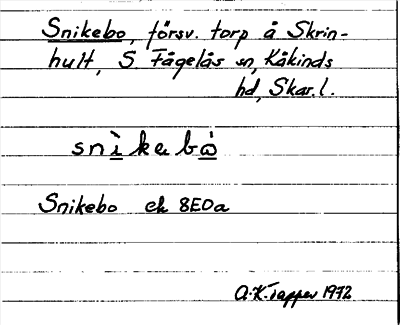 Snikebo, försv. torp å Skrin-
hult, S Fågelås sn, Kåkinds
hd, Skar.l.
snìkebò
Snikebo ek 8E0a
A.-K. Tapper 1972